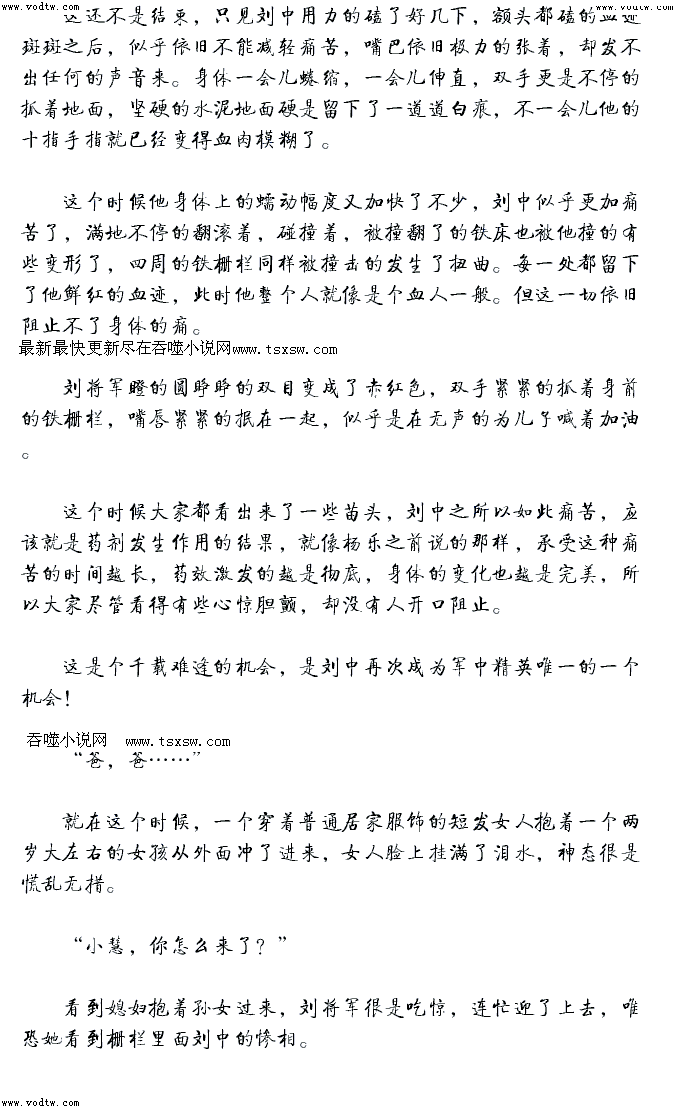 www.vodtw.com www.vodtw.com
这还不是结束，只见刘中用力的磕了好几下，额头都磕的血迹
斑斑之后，似乎依旧不能减轻痛苦，嘴巴依旧极力的张着，却发不
出任何的声音来。身体一会儿蜷缩，一会儿伸直，双手更是不停的
抓着地面，坚硬的水泥地面硬是留下了一道道白痕，不一会儿他的
十指手指就已经变得血肉模糊了。
这个时候他身体上的蠕动幅度又加快了不少，刘中似乎更加痛
苦了，满地不停的翻滚着，碰撞着，被撞翻了的铁床也被他撞的有
些变形了，四周的铁栅栏同样被撞击的发生了扭曲。每一处都留下
了他鲜红的血迹，此时他整个人就像是个血人一般。但这一切依旧
阻止不了身体的痛。
最新最快更新尽在吞噬小说网www.tsxsw.com
刘将军瞪的圆睁睁的双目变成了赤红色，双手紧紧的抓着身前
的铁栅栏，嘴唇紧紧的抿在一起，似乎是在无声的为儿子喊着加油
。
这个时候大家都看出来了一些苗头，刘中之所以如此痛苦，应
该就是药剂发生作用的结果，就像杨乐之前说的那样，承受这种痛
苦的时间越长，药效激发的越是彻底，身体的变化也越是完美，所
以大家尽管看得有些心惊胆颤，却没有人开口阻止。
这是个千载难逢的机会，是刘中再次成为军中精英唯一的一个
机会！
吞噬小说网 www.tsxsw.com
“爸，爸……”
就在这个时候，一个穿着普通居家服饰的短发女人抱着一个两
岁大左右的女孩从外面冲了进来，女人脸上挂满了泪水，神态很是
慌乱无措。
“小慧，你怎么来了？”
看到媳妇抱着孙女过来，刘将军很是吃惊，连忙迎了上去，唯
恐她看到栅栏里面刘中的惨相。
www.vodtw.com www.vodtw.com